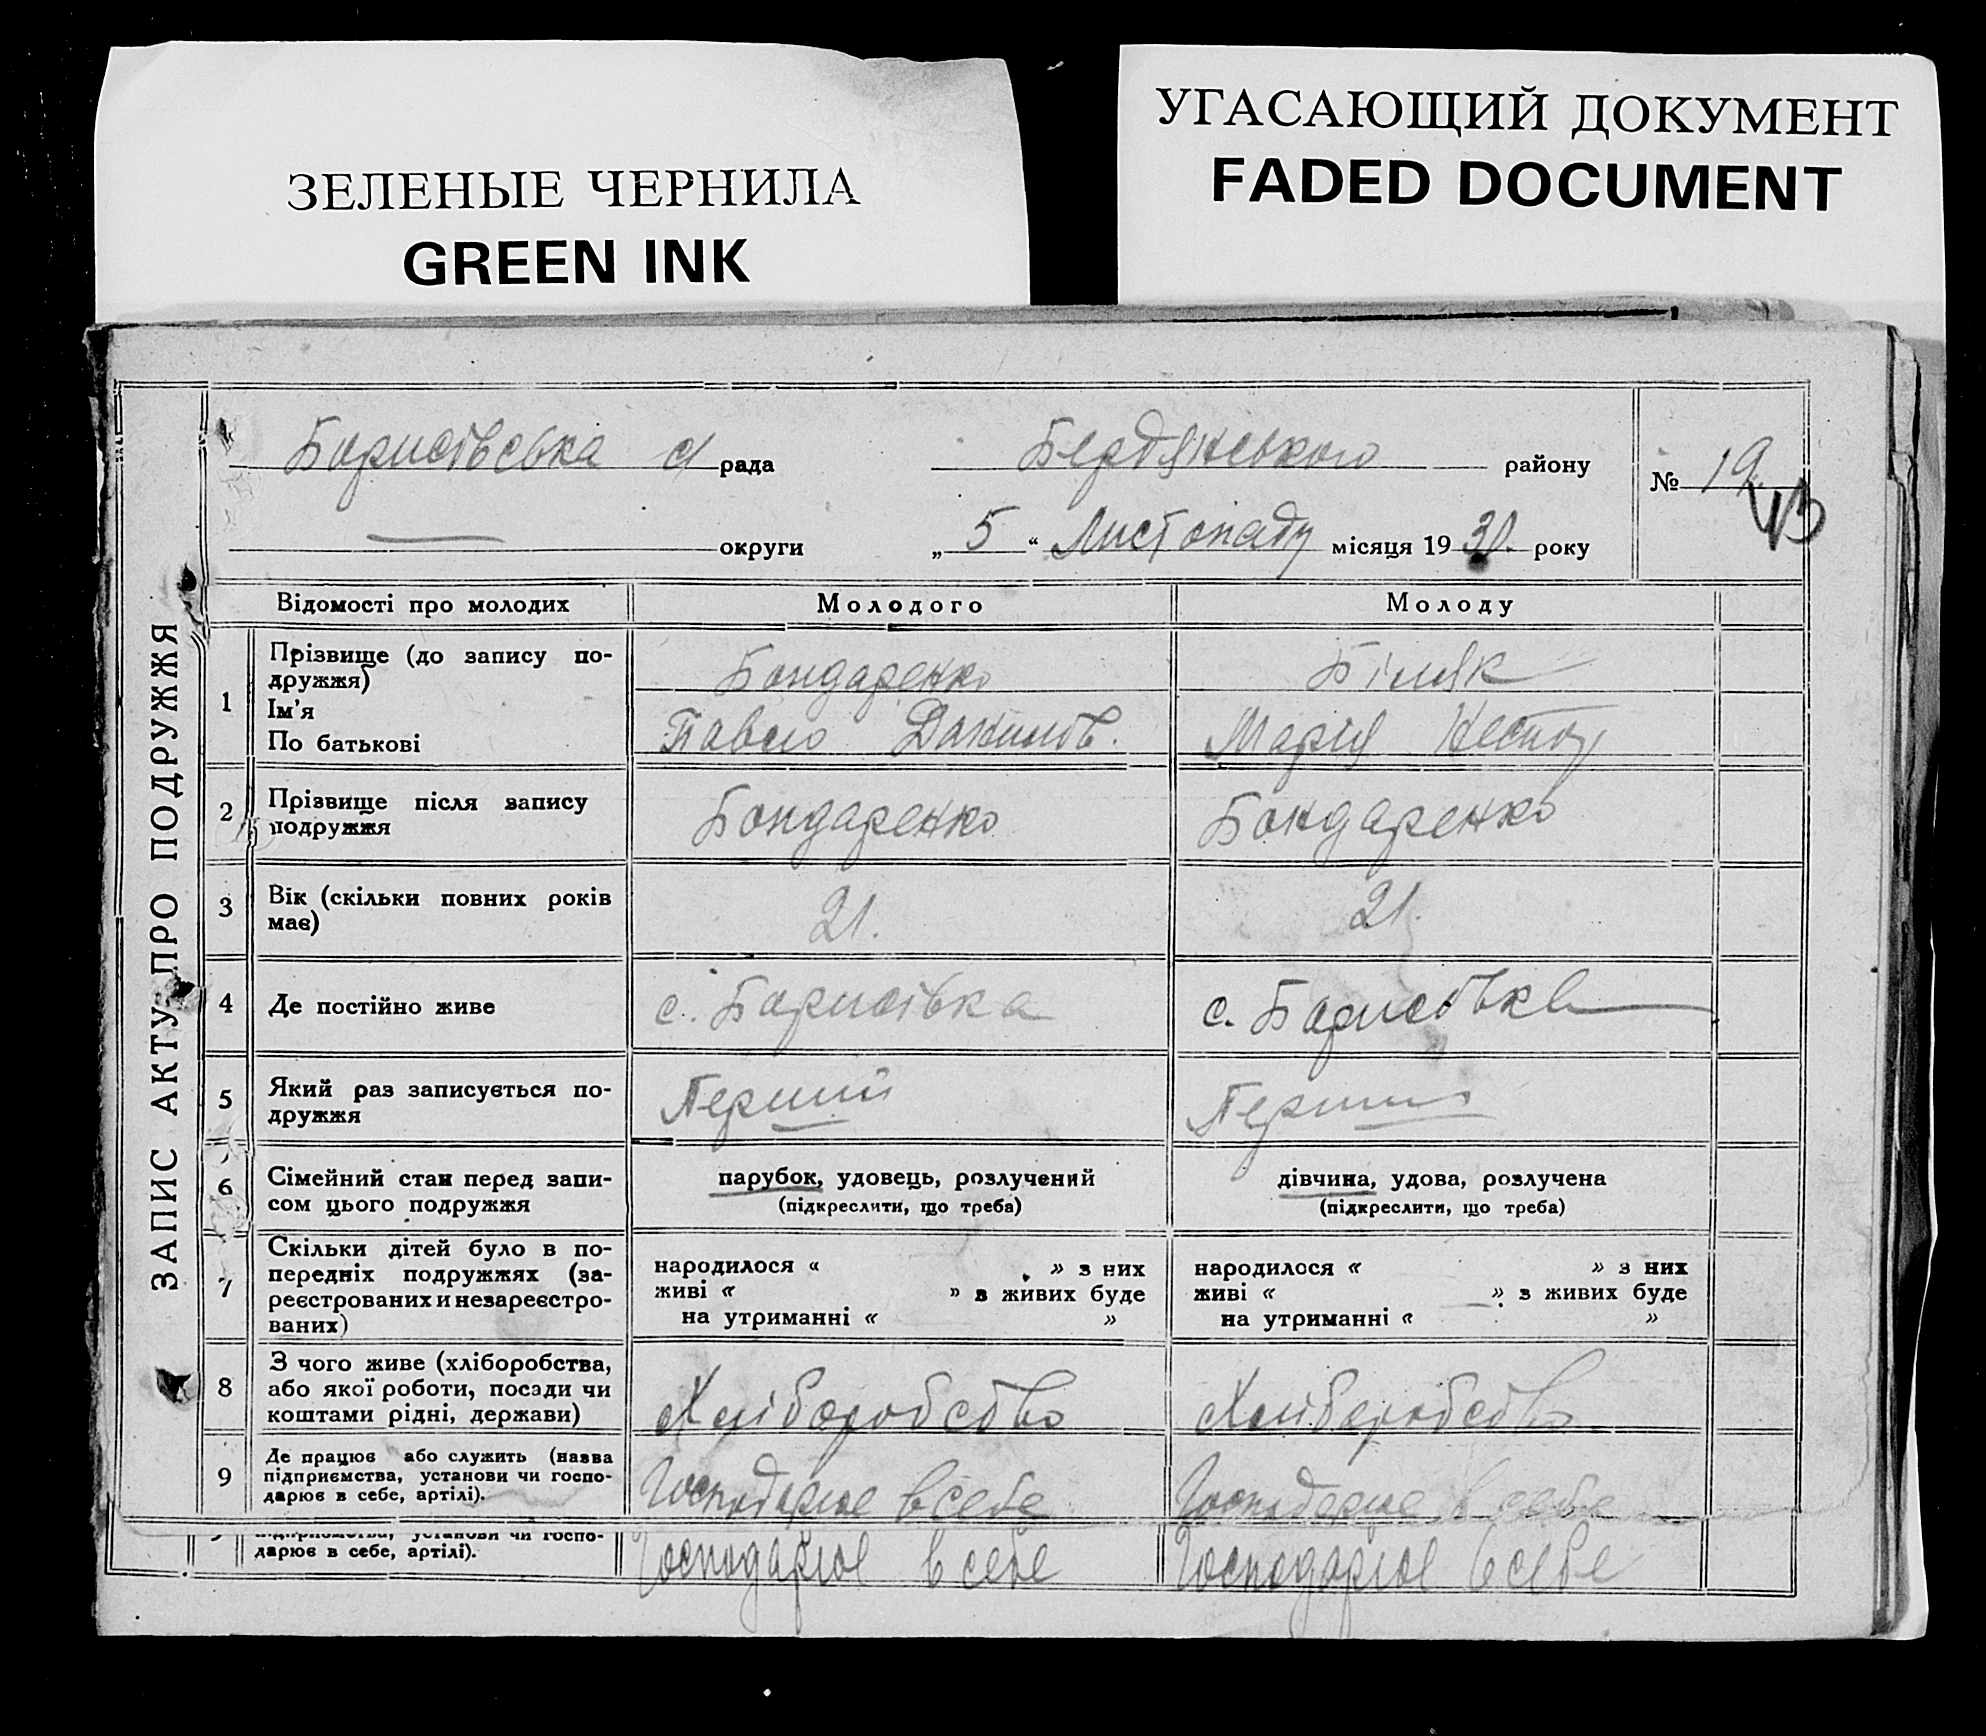 ЗЕЛЕНЫЕ ЧЕРНИЛА
GREEN INK
УГАСАЮЩИЙ ДОКУМЕНТ
FADED DOCUMENT
ЗАПИС АКТУ ПРО ПОДРУЖЖЯ
Борисівська с/ рада Бердянського району
№ 19
43
округи „ 5 “ Листопаду місяця 19 30. року
Відомості про молодих Молодого Молоду
1 Прізвище (до запису по-
дружжя) Бондаренко Біляк
Ім’я
По батькові Павло Данилов. Марія
2 Прізвище після запису
подружжя Бондаренко Бондаренко
3 Вік (скільки повних років
має) 21. 21.
4 Де постійно живе с. Борисівка с. Борисівка
5 Який раз записується по-
дружжя Перший Перший
6 Сімейний стан перед запи-
сом цього подружжя
парубок, удовець, розлучений
(підкреслити, що треба)
дівчина, удова, розлучена
(підкреслити, що треба)
7 Скільки дітей було в по-
передніх подружжях (за-
реєстрованих и незареєстро-
ваних)
народилося « » з них
живі « » з живих буде
на утриманні « »
народилося « » з них
живі « » з живих буде
на утриманні « »
8 З чого живе (хліборобства,
або якої роботи, посади чи
коштами рідні, держави)
Хліборобство Хліборобство
9 Де працює або служить (назва
підприємства, установи чи госпо-
дарює в себе, артілі).
Господарює в себе Господарює в себе
підприємства, установи чи госпо-
дарює в себе, артілі).
Господарює в себе Господарює в себе